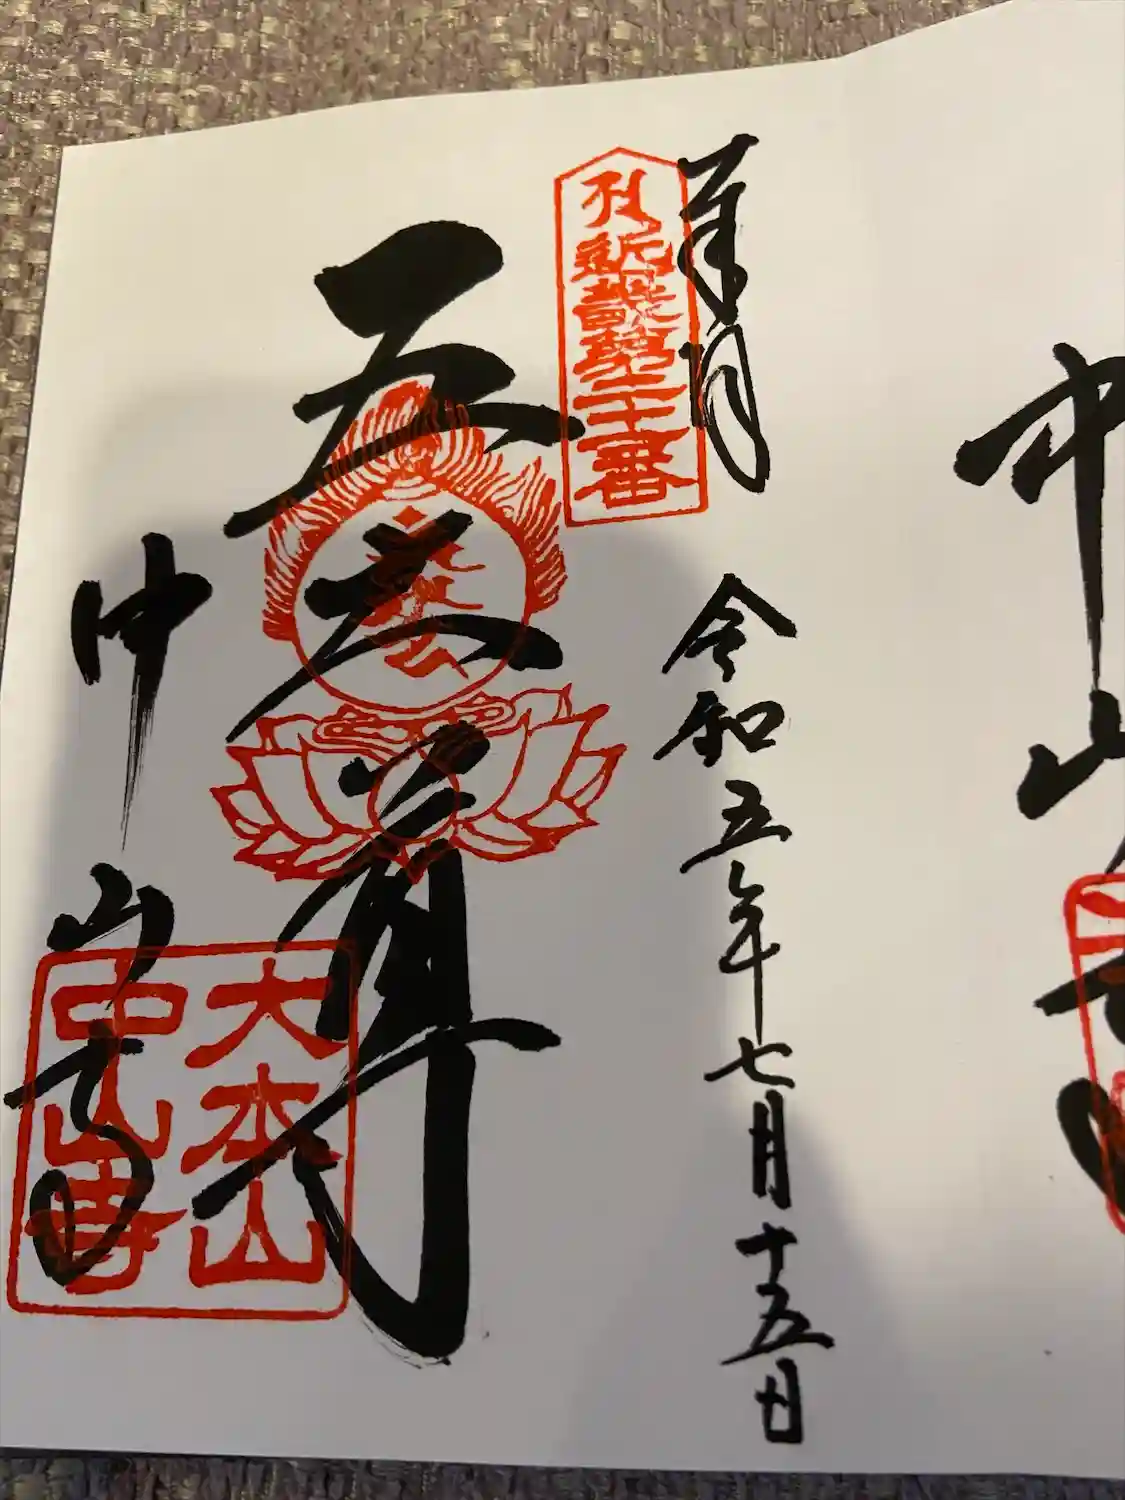 奉拝 令和五年七月十五日
近畿第二十一番
五大尊
中山寺
大本山
中山寺
中山